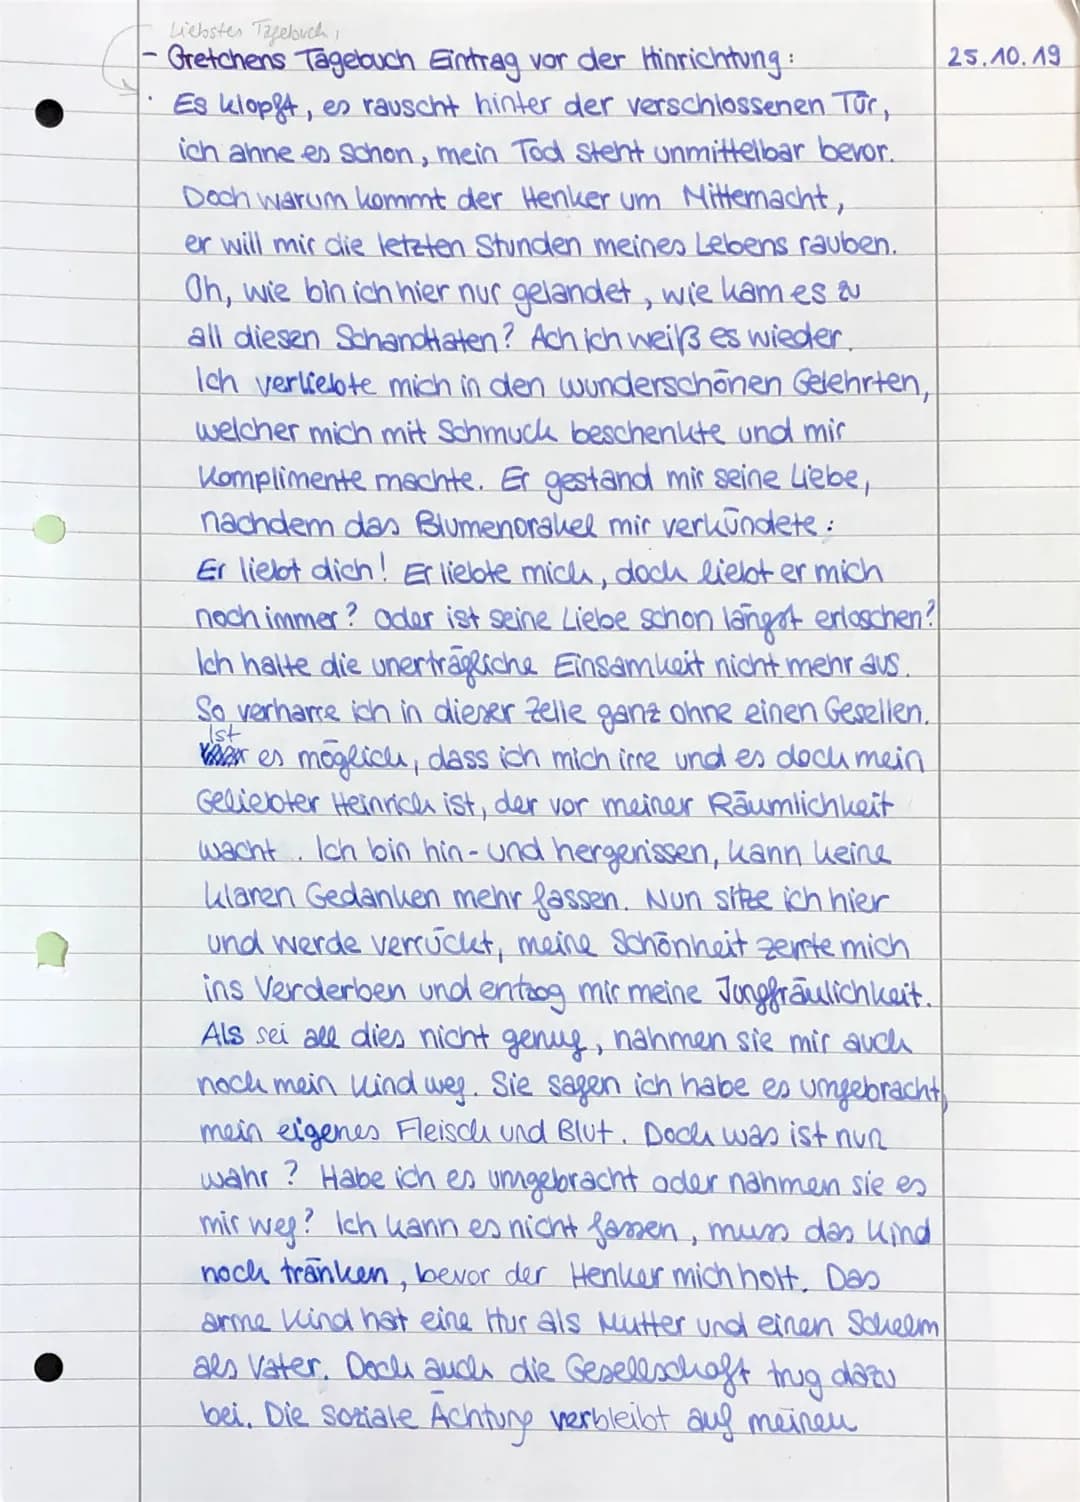 Liebstes Tagebuch,
- Gretchens Tagebuch Eintrag vor der Hinrichtung: 25.10.19
· Es klopft, es rauscht hinter der verschlossenen Tür,
ich ahne es schon, mein Tod steht unmittelbar bevor.
Doch warum kommt der Henker um Mitternacht,
er will mir die letzten Stunden meines Lebens rauben.
Oh, wie bin ich hier nur gelandet, wie kam es zu
all diesen Schandtaten? Ach ich weiß es wieder.
Ich verliebte mich in den wunderschönen Gelehrten,
welcher mich mit Schmuck beschenkte und mir
Komplimente machte. Er gestand mir seine Liebe,
nachdem das Blumenorakel mir verkündete:
Er liebt dich! Er liebte mich, doch liebt er mich
noch immer? Oder ist seine Liebe schon längst erloschen?
Ich halte die unerträgliche Einsamkeit nicht mehr aus.
So verharre ich in dieser Zelle ganz ohne einen Gesellen.
Ist
es möglich, dass ich mich irre und es doch mein
Geliebter Heinrich ist, der vor meiner Räumlichkeit
wacht.. Ich bin hin- und hergerissen, kann keine
klaren Gedanken mehr fassen. Nun sitze ich hier
und werde verrückt, meine Schönheit zerrte mich
ins Verderben und entzog mir meine Jungfräulichkeit.
Als sei all dies nicht genug, nahmen sie mir auch
noch mein Kind weg. Sie sagen ich habe es umgebracht,
mein eigenes Fleisch und Blut. Doch was ist nun
wahr? Habe ich es umgebracht oder nahmen sie es
mir weg? Ich kann es nicht fassen, muss das Kind
noch tränken, bevor der Henker mich holt. Das
arme Kind hat eine Hur als Mutter und einen Schelm
als Vater. Doch auch die Gesellschaft trug dazu
bei. Die soziale Achtung verbleibt auf meinen